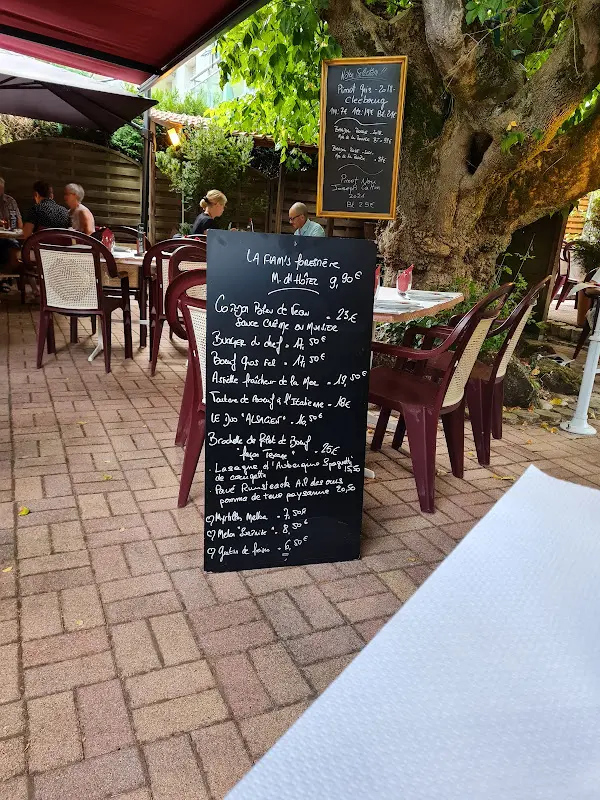 Notre Sélection !!
Pinot Gris - 2018
Cleebourg
Pinot Noir
2021
Bt 29€
LA FLAM'S forestière
M. de Hôtel 9,90€
Cordon Bleu de Veau - 23€
Sauce Crème ou Munster
Burger du chef - 17,50€
Boeuf gros sel - 17,50€
Assiette fraîcheur de la Mer - 19,50€
Tartare de Boeuf à l'Italienne - 18€
LE DUO "ALSACIEN" - 16,50€
Brochette de filet de Boeuf
"façon Terrasse" - 25€
Lasagne d'Aubergine Spaghetti
de courgette 15,50
Pavé Rumsteack Ail des ours
pomme de terre paysanne 20,50
Myrtilles Melba - 7,50€
Melon - 8,50€
- 6,50€